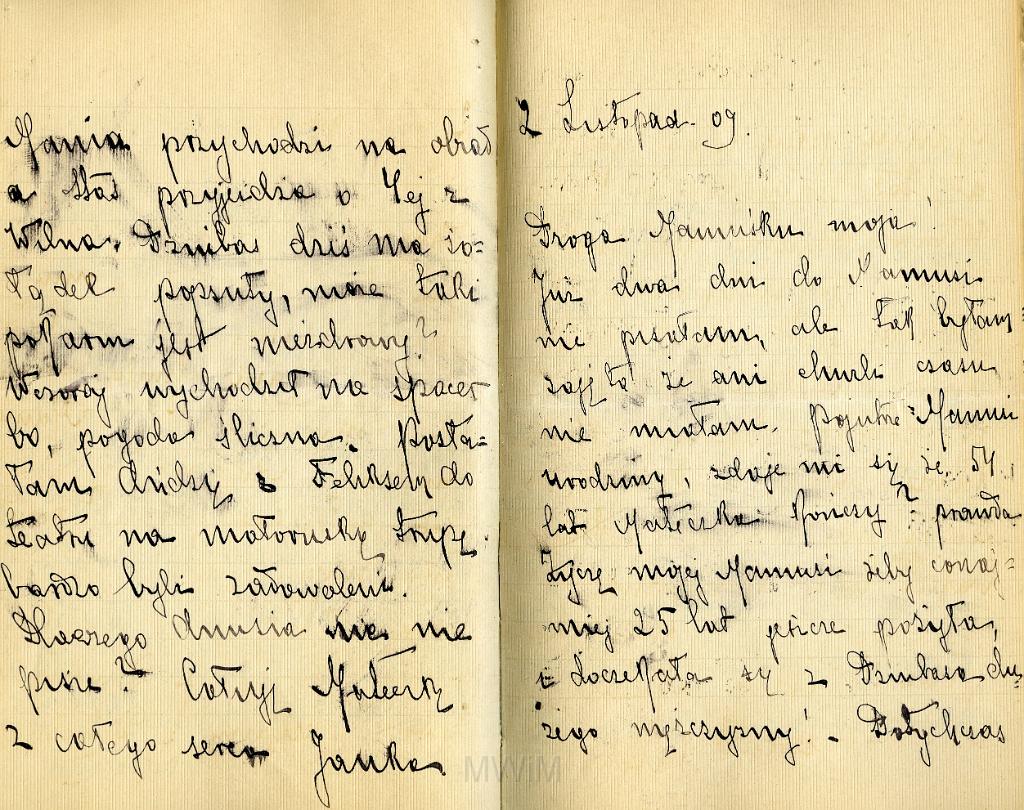 Mania przychodzi na obiad
a Staś przyjedzie o 4ej z
Wilna. Dznibaś dziś ma żo=
łądek popsuty, może taki
pokarm jest niezdrowy?
Wczoraj wychodził na spacer
bo, pogoda śliczna. Posła=
łam Andzię z Feliksem do
teatru na małoruską trupę.
bardzo byli zadowoleni.
Dlaczego Anusia nie
pisze? Całuję Mateczkę
z całego serca Janka.
2 Listopad. 09.
Droga Mamuśku moja!
Już dwa dni do Mamusi
nie pisałam, ale tak byłam
zajęta że ani chwili czasu
nie miałam. Pojutrze Mamusi
urodziny, zdaje mi się że 54,
lat Mateczka kończy? prawda
Życzę mojej Mamusi żeby conaj=
mniej 25 lat jeszcze pożyła,
i doczekała się z Dznibasa du=
żego mężczyzny! - Dotychczas
MWiM